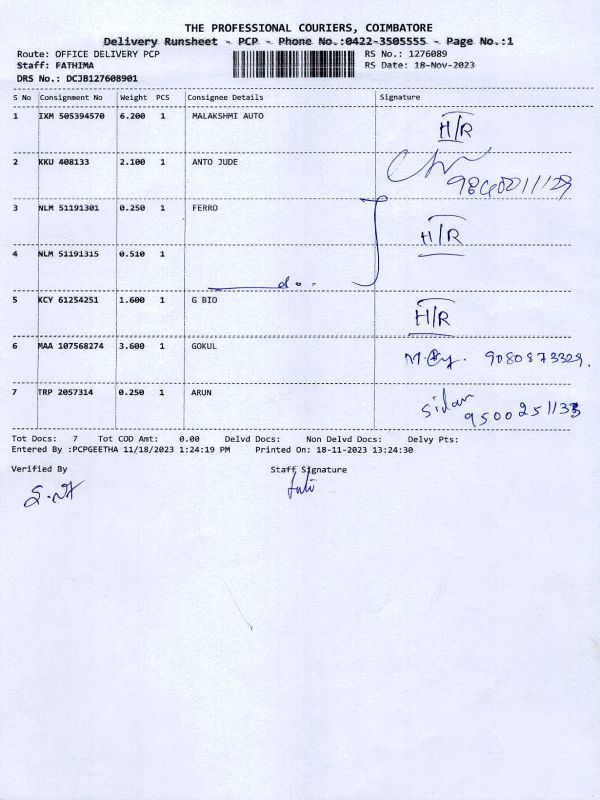 THE PROFESSIONAL COURIERS, COIMBATORE
Delivery Runsheet - PCP - Phone No.:0422-3505555 - Page No.:1
Route: OFFICE DELIVERY PCP RS No.: 1276089
Staff: FATHIMA RS Date: 18-Nov-2023
DRS No.: DCJB127608901
S No Consignment No Weight PCS Consignee Details Signature
1 IXM 505394570 6.200 1 MALAKSHMI AUTO H/R
2 KKU 408133 2.100 1 ANTO JUDE
3 NLM 51191301 0.250 1 FERRO H/R
4 NLM 51191315 0.510 1
do.
5 KCY 61254251 1.600 1 G BIO H/R
6 MAA 107568274 3.600 1 GOKUL 9080873329.
7 TRP 2057314 0.250 1 ARUN
Tot Docs: 7 Tot COD Amt: 0.00 Delvd Docs: Non Delvd Docs: Delvy Pts:
Entered By :PCPGEETHA 11/18/2023 1:24:19 PM Printed On: 18-11-2023 13:24:30
Verified By Staff Signature